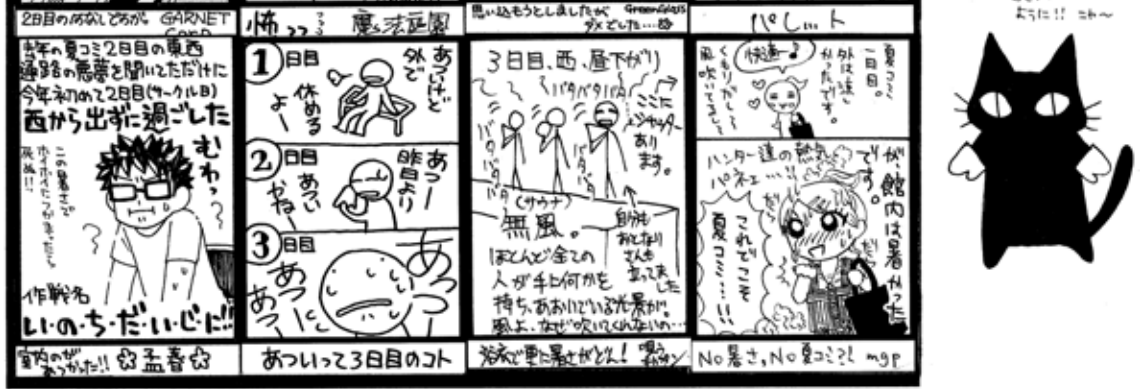 2日目のはなしどめが GARNET
去年の夏コミ2日目の東西
通路の悪夢を聞いてただけに
今年初めて2日目(サークル日)
西から出ずに過ごした
むわっ
この暑さで
死ぬ!!
作戦名
い・の・ち・だ・い・じ・に!!
室内のが
あつかった!! ☆孟春☆
怖っっ 魔法庭園
①日目
あついけど
外で
休める
よー
②日目
あつー
昨日より
あつい
かねー
③日目
あつっ
あつ
あつ
あついって3日目のコト
思い込もうとしましたが GreenGlass
ダメでした…
3日目、西、昼下がり
バタバタバタ
バタバタ
ここに
シャッター
あり
ます。
(サウナ)
無風。
自分も
おとなり
さんも
立ってました
ほとんど全ての
人が手に何かを
持ち、あおいでいる光景が。
風よ、なぜ吹いてくんないの…
浴衣で更に暑さがドン!
ぱれっと
夏コミ
一日目。
外は涼し
かったです。
快適〜♪
くもりがち〜
風吹いてるし〜
が、館内は暑かった
です。
ハンター達の熱気
パネェ…!!
これでこそ
夏コミ…!!
NO暑さ,NO夏コミ?! mgp
ように!!